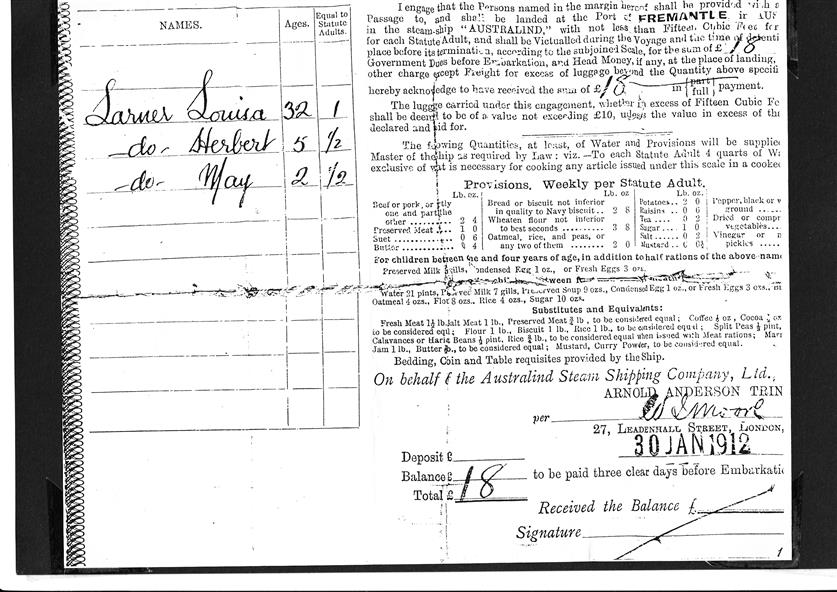 NAMES. Ages. Equal to Statute Adults.
Larner Louisa 32 1
-do- Herbert 5 1/2
-do- May 2 1/2
I engage that the Persons named in the margin hereof shall be provided with a
Passage to, and shall be landed at the Port of FREMANTLE in AUS
in the steam-ship "AUSTRALIND," with not less than Fifteen Cubic Feet for
for each Statute Adult, and shall be Victualled during the Voyage and the time of detenti
place before its termination, according to the subjoined Scale, for the sum of £ 18
Government Dues before Embarkation, and Head Money, if any, at the place of landing,
other charge except Freight for excess of luggage beyond the Quantity above specifi
hereby acknowledge to have received the sum of £ 18 in part full payment.
The luggage carried under this engagement, whether in excess of Fifteen Cubic Fe
shall be deemed to be of a value not exceeding £10, unless the value in excess of the
declared and paid for.
The following Quantities, at least, of Water and Provisions will be supplied
Master of the ship as required by Law: viz.—To each Statute Adult 4 quarts of W
exclusive of what is necessary for cooking any article issued under this scale in a cooked
Provisions, Weekly per Statute Adult.
Lb. oz. Lb. oz
Beef or pork, or partly
one and part the
other 2 4
Preserved Meat 1 0
Suet 0 6
Butter 4
Bread or biscuit not inferior
in quality to Navy biscuit 2 8
Wheaten flour not inferior
to best seconds 3 8
Oatmeal, rice, and peas, or
any two of them 2 0
Potatoes 2 0
Raisins 0 6
Tea 0 2
Sugar 1 0
Salt 0 2
Mustard 0 0½
Pepper, black or w
ground
Dried or compr
vegetables
Vinegar or m
pickles
For children between the and four years of age, in addition to half rations of the above name
Preserved Milk gills, Condensed Egg 1 oz., or Fresh Eggs 3 ozs.
Water 21 pints, Preserved Milk 7 gills, Preserved Soup 9 ozs., Condensed Egg 1 oz., or Fresh Eggs 3 ozs.
Oatmeal 4 ozs., Flour 8 ozs. Rice 4 ozs., Sugar 10 ozs.
Substitutes and Equivalents:
Fresh Meat 1¼ lb. Salt Meat 1 lb., Preserved Meat ¾ lb., to be considered equal; Coffee ½ oz, Cocoa
to be considered equal; Flour 1 lb., Biscuit 1 lb., Rice 1 lb., to be considered equal; Split Peas ½ pint,
Calavances or Haricot Beans ½ pint, Rice ¾ lb., to be considered equal when issued with Meat rations; Mar
Jam 1 lb., Butter lb., to be considered equal; Mustard, Curry Powder, to be considered equal.
Bedding, Coin and Table requisites provided by the Ship.
On behalf of the Australind Steam Shipping Company, Ltd.,
ARNOLD ANDERSON TRIN
per W S Moore
27, LEADENHALL STREET, LONDON,
30 JAN 1912
Deposit £
Balance £ 18 to be paid three clear days before Embarkati
Total £
Received the Balance £
Signature
1